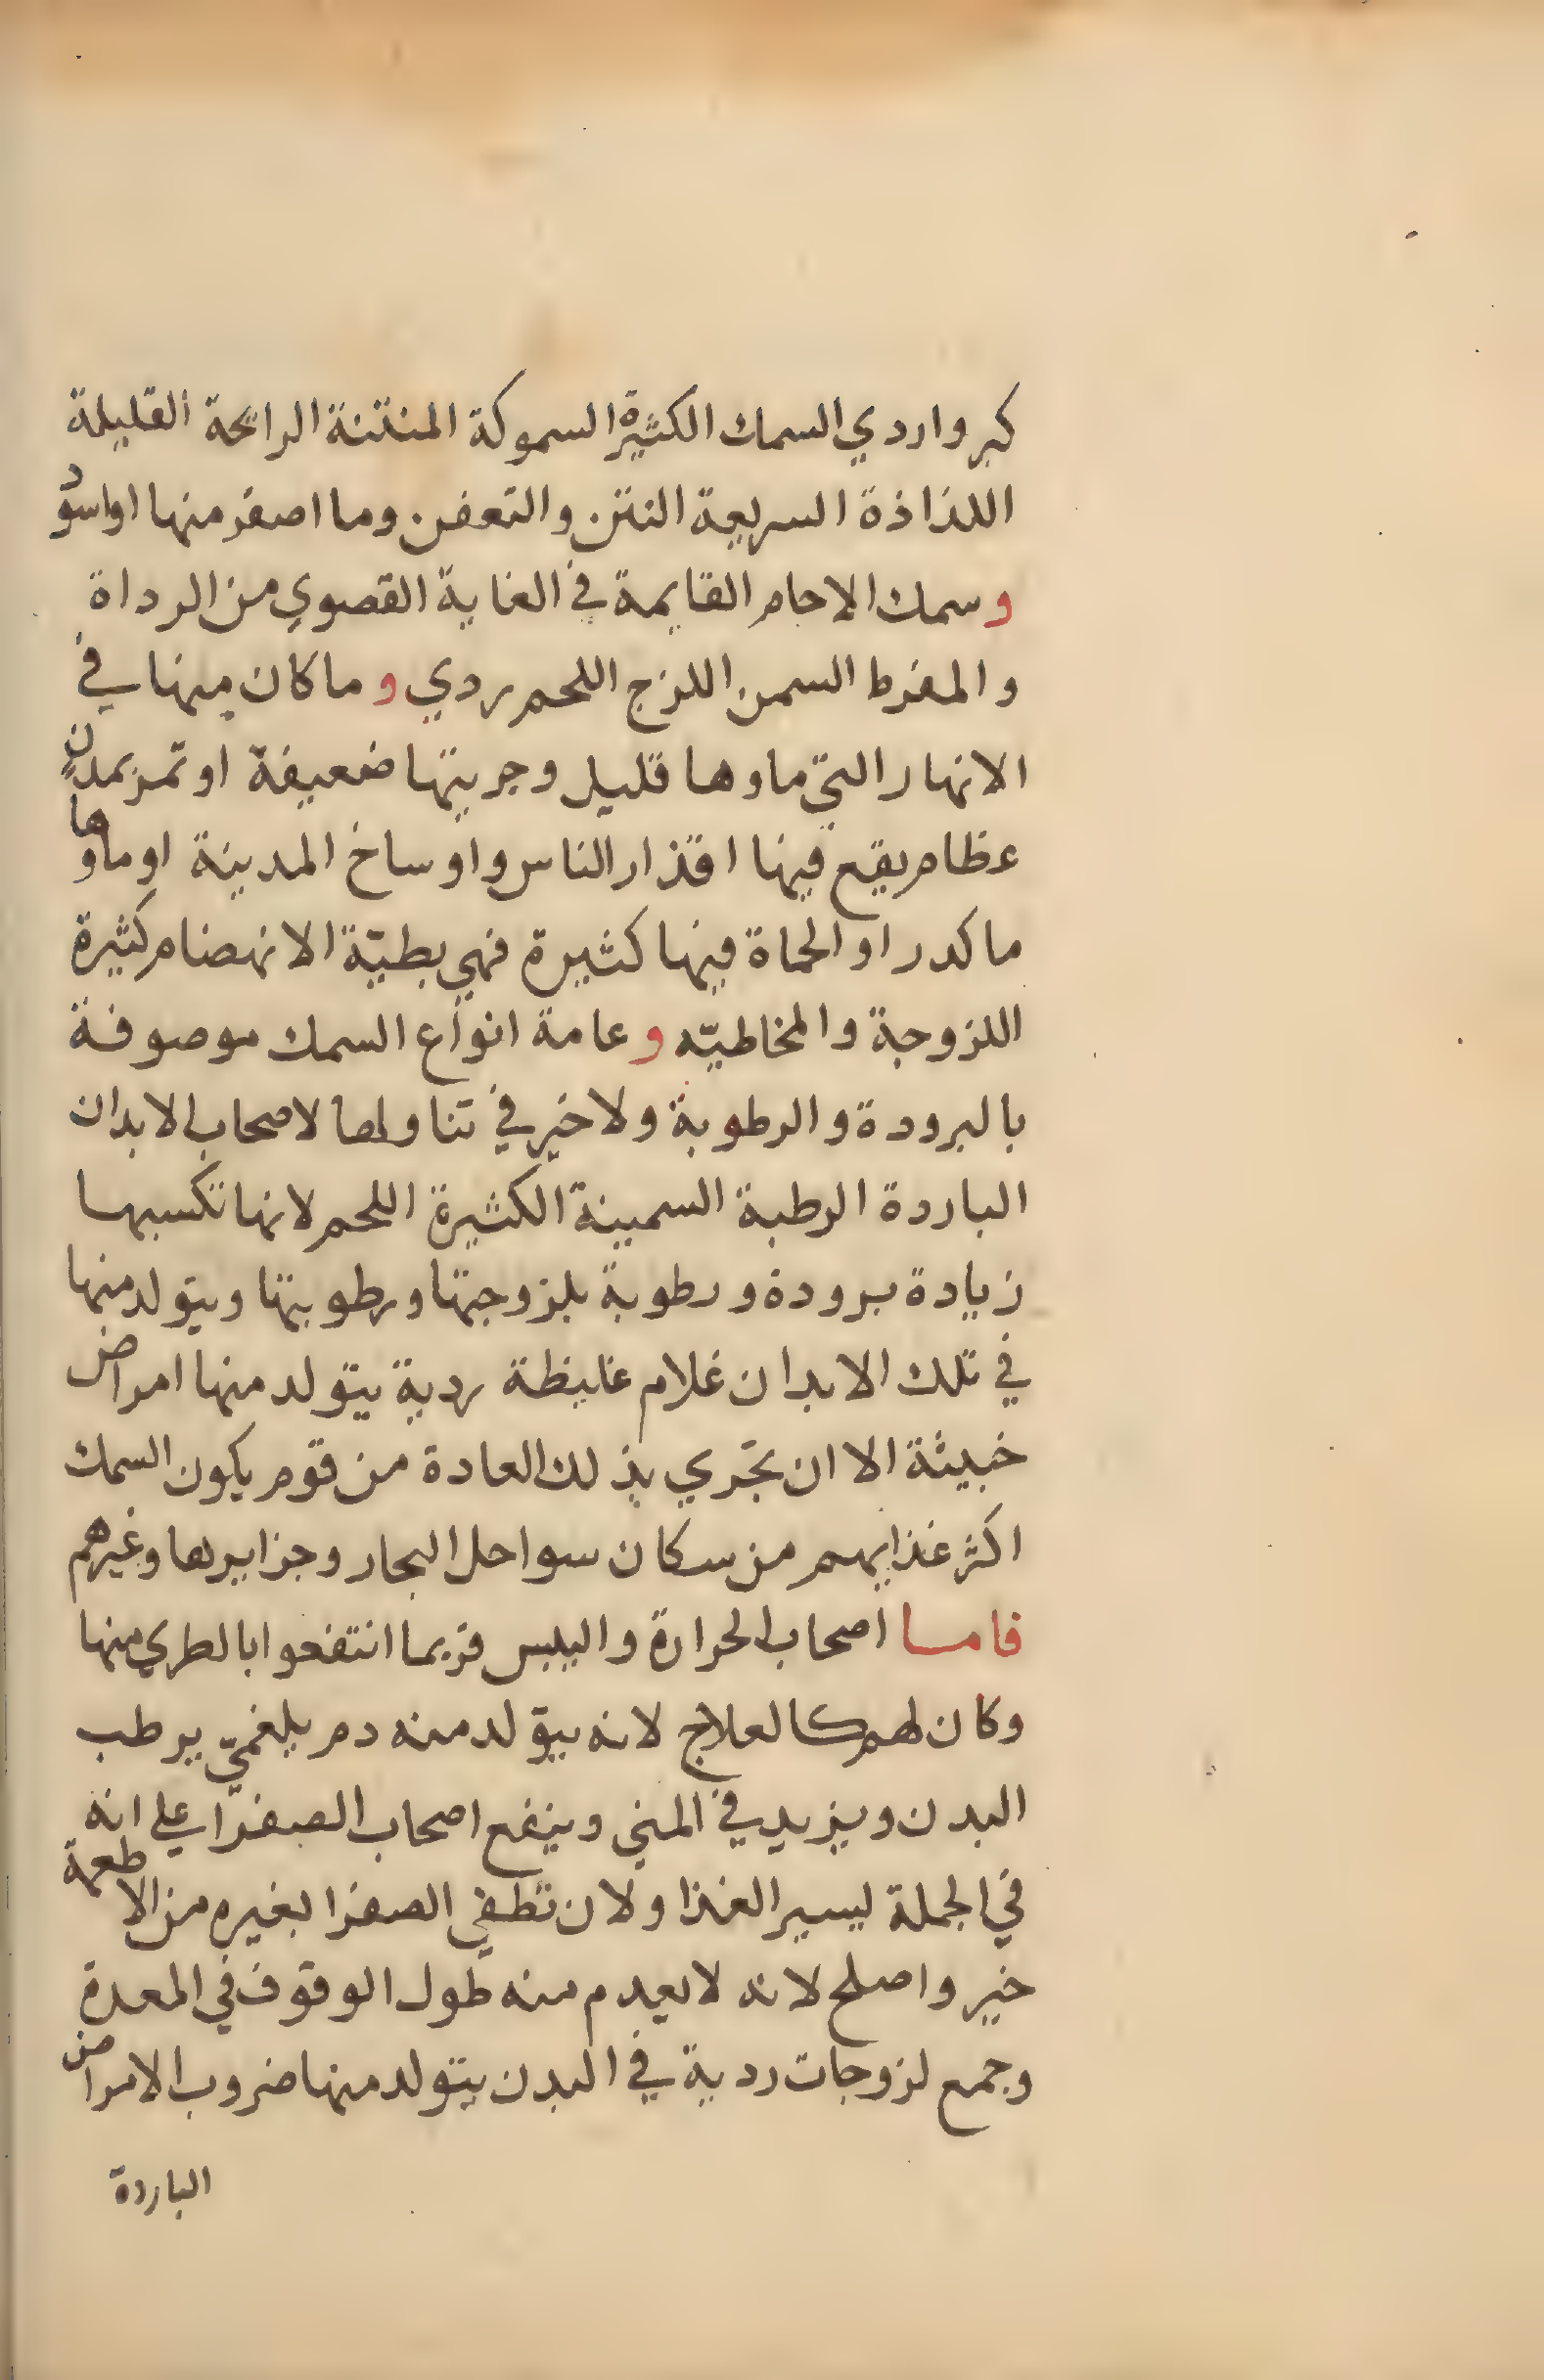 كبر واردي السمك الكثيرة السموكة المنتنة الرائحة القليلة
اللذاذة السريعة النتن والتعفن وما اصفر منها او اسود
وسمك الاجام القايمة في الغاية القصوي من الرداة
والمفرط السمن اللزج اللحم ردي وما كان منها في
الانهار التي ماوها قليل وجريتها ضعيفة او تمر بمدن
عظام يقع فيها اقذار الناس واوساخ المدينة او ماوها
ماكدر او الحماة فيها كثيرة فهي بطيّة الانهضام كثيرة
اللزوجة والمخاطيّه وعامة انواع السمك موصوفة
بالبرودة والرطوبة ولا خير في تناولها لاصحاب الابدان
الباردة الرطبة السمينة الكثيرة اللحم لانها تكسبها
زيادة برودة ورطوبة بلزوجتها ورطوبتها ويتولد منها
في تلك الابدان غلام غليظة ردية يتولد منها امراض
خبيثة الا ان تجري بذلك العادة من قوم يكون السمك
اكثر غذايهم من سكان سواحل البحار وجزايرها وغيرهم
فاما اصحاب الحرارة واليبس فربما انتفعوا بالطري منها
وكان لهم كالعلاج لانه يتولد منه دم بلغميّ يرطب
البدن ويزيد في المني وينفع اصحاب الصفرا علي انه
في الجملة يسير الغذا ولان تطفي الصفرا بغيره من الاطعمة
خير واصلح لانه لا يعدم منه طول الوقوف في المعدة
وجمع لزوجات ردية في البدن يتولد منها ضروب الامراض
الباردة